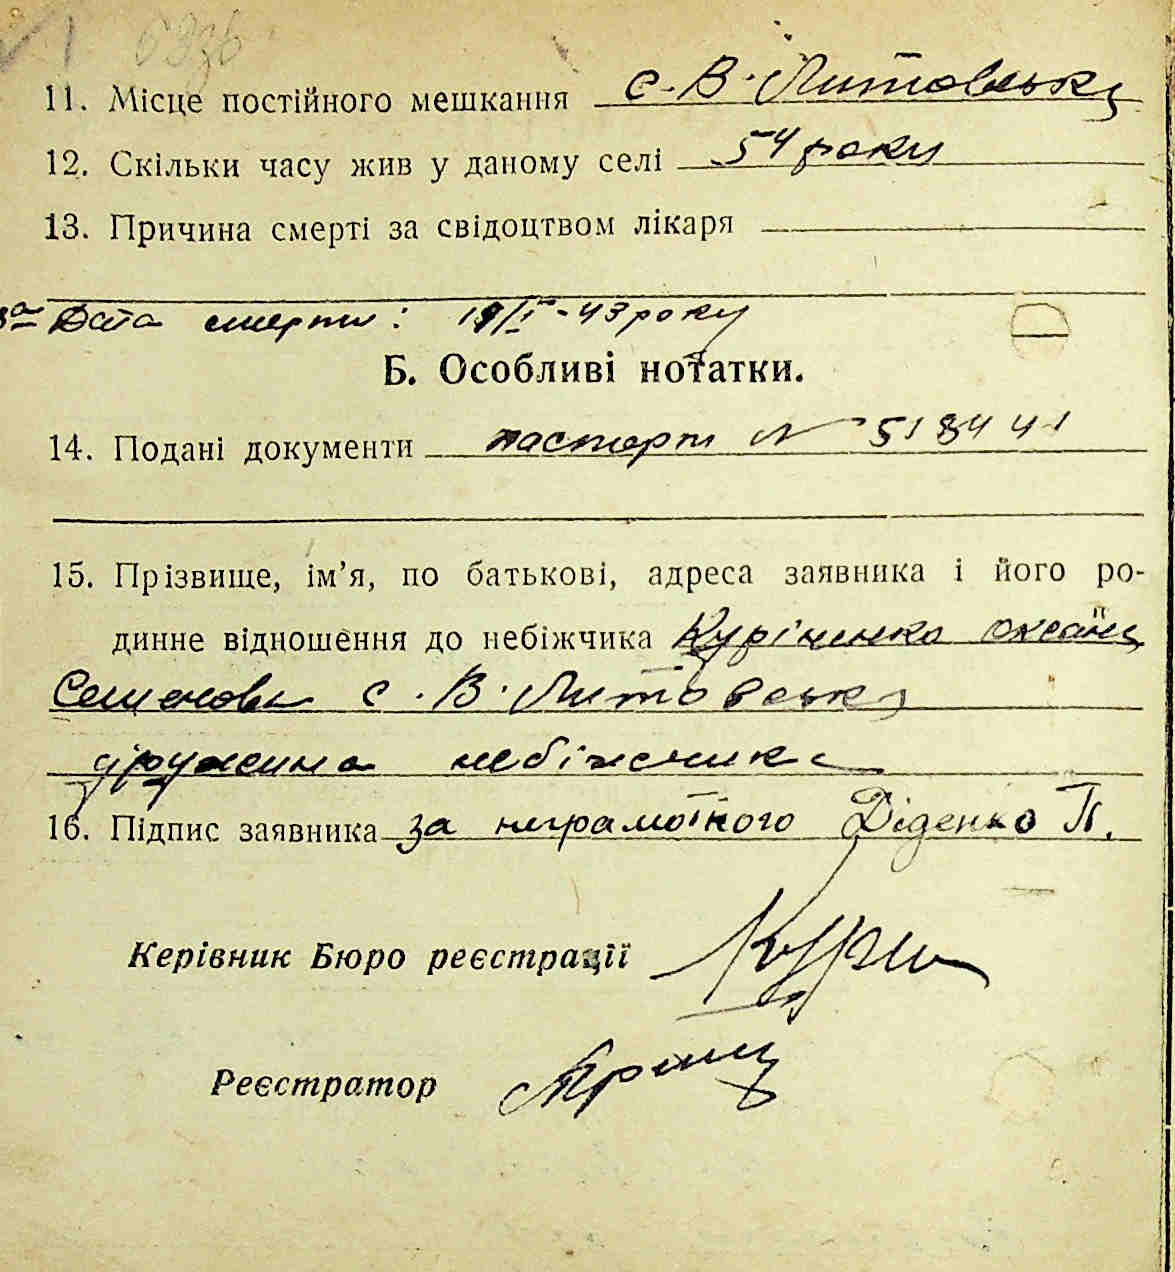 11. Місце постійного мешкання с. В. Литовську
12. Скільки часу жив у даному селі 54 роки
13. Причина смерті за свідоцтвом лікаря
Дата смерти: 19/I-43 року
Б. Особливі нотатки.
14. Подані документи паспорт N 518441
15. Прізвище, ім’я, по батькові, адреса заявника і його ро-
динне відношення до небіжчика Курінинко Оксана
Семенова с. В. Литовську
дружина небіжчика
16. Підпис заявника за играмотного Діденко П.
Керівник Бюро реєстрації
Реєстратор